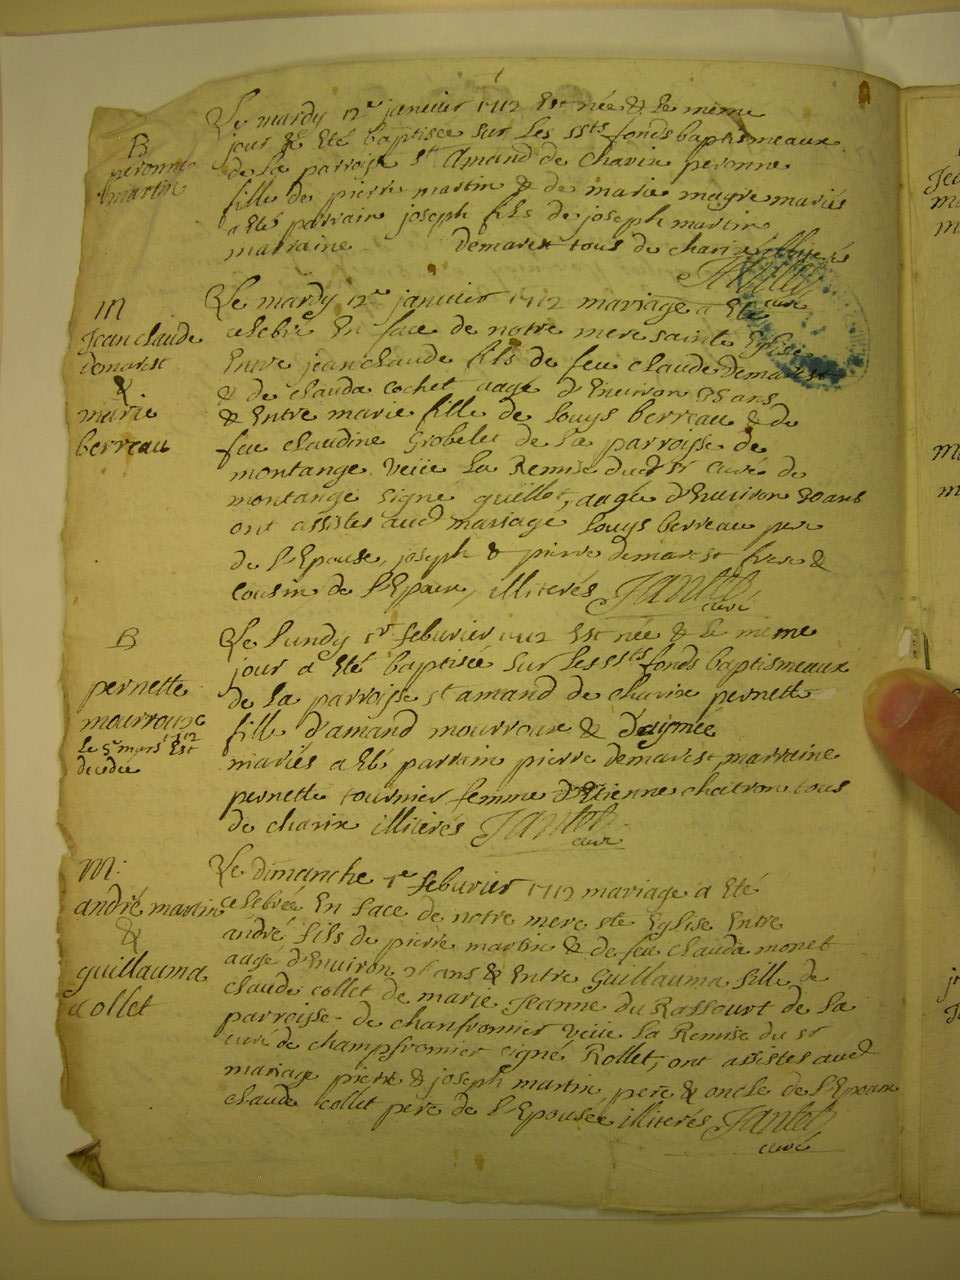 B
peronne
martin
Le mardy 12e janvier 1712 Est née & Le même
jour a Eté baptisée sur Les Ssts fonds baptismeaux
de La parroisse St Amand de Charix peronne
fille de pierre martin & de marie mayre mariés
a Eté parrain joseph fils de joseph martin
marraine demarest tous de charix illiterés
Jantet
curé
M
Jean claude
demarest
&
marie
berreau
Le mardy 12e janvier 1712 mariage a Eté
celebré En face de notre mere sainte Eglise
Entre jean claude fils de feu claude demarest
& de clauda cochet aagé d'Environ ans
& Entre marie fille de Louys berreau & de
feu claudine Grobelet de La parroisse de
montange veüe La Remise dud Sr curé de
montange signé guillot, aagée d'Environ 30 ans
ont assistés aud mariage Louys berreau pere
de l'Epouse, joseph & pierre demarest frere &
cousin de l'Epoux, illiterés Jantet
curé
B
pernette
mourroux
Le 5e mars 1712 Est
decedée
Le Lundy 1r feburier 1712 Est née & Le même
jour a Eté baptisée sur Les Ssts fonds baptismeaux
de La parroisse St amand de charix pernette
fille d'amand mourroux & d'aymée
mariés a Eté parrain pierre demarest, marraine
pernette tournier femme d'Etienne chatron tous
de charix illiterés Jantet
curé
M.
andré martin
&
guillauma
collet
Le dimanche feburier 1712 mariage a Eté
celebrée En face de notre mere ste Eglise Entre
andré fils de pierre martin & de feu clauda monet
aagé d'Environ ans & Entre Guillauma fille de
claude collet de marie Jeanne du Rassourt de La
parroisse de chanfromier veüe La Remise du sr
curé de champfromier signé Rollet, ont assistés aud
mariage pierre & joseph martin pere & oncle de l'Epoux
claude collet pere de l'Epousée illiterés Jantet
curé